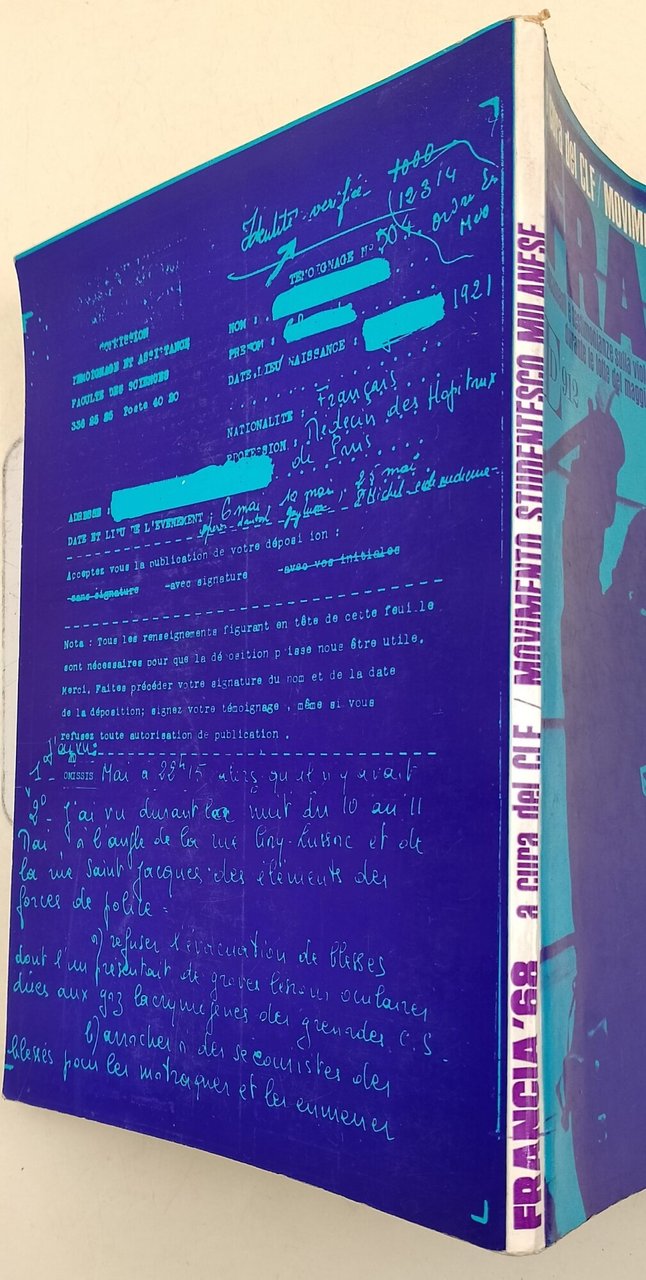 Identité vérifiée
1000
12314
ordre En
TEMOIGNAGE N° 504
COMMISSION
TEMOIGNAGE ET ASSISTANCE
FACULTE DES SCIENCES
336 25 25 Poste 40 20
NOM :
PRENOM :
DATE, LIEU NAISSANCE : 1921
NATIONALITE : Français
PROFESSION : Médecin des Hopitaux
de Paris
ADRESSE :
DATE ET LIEU DE L'EVENEMENT : 6 mai, 10 mai, 25 mai
Acceptez vous la publication de votre déposition :
-sans signature -avec signature -avec vos initiales
Nota : Tous les renseignements figurant en tête de cette feuille
sont nécessaires pour que la déposition puisse nous être utile.
Merci. Faites précéder votre signature du nom et de la date
de la déposition; signez votre témoignage , même si vous
refusez toute autorisation de publication .
J'ai vu:
1°- OMISSIS Mai à 22h15 alors qu'il n'y avait
2°- J'ai vu durant la nuit du 10 au 11
Mai à l'angle de la rue Gay-Lussac et de
la rue Saint Jacques des éléments des
forces de police =
a) refuser l'évacuation de blessés
dont l'un présentait de graves lésions oculaires
dues aux gaz lacrymogènes des grenades C.S.
b) arracher à des secouristes des
blessés pour les matraquer et les emmener
FRANCIA'68 a cura del CLF / MOVIMENTO STUDENTESCO MILANESE
cura del CLF / MOVIM
FRA
e testimonianze sulla viol
durante le lotte del maggi
D 912